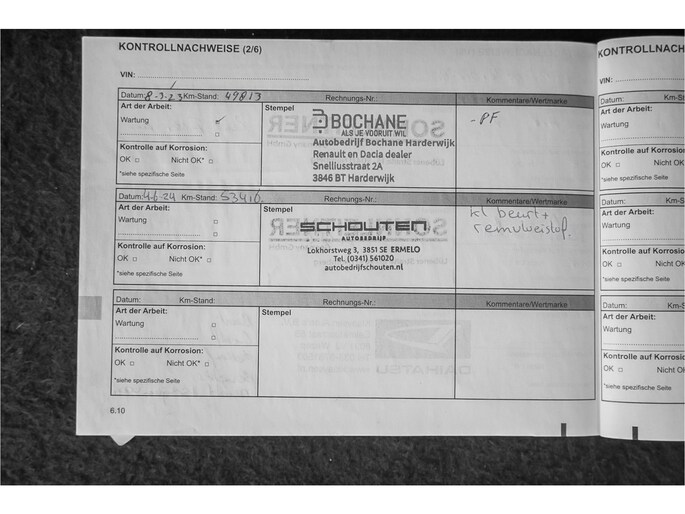 KONTROLLNACHWEISE (2/6)
VIN:
Datum: 8-3-23 Km-Stand: 49813 Rechnungs-Nr.: Kommentare/Wertmarke
Art der Arbeit: Stempel
Wartung
BOCHANE
ALS JE VOORUIT WIL
-PF
Autobedrijf Bochane Harderwijk
Renault en Dacia dealer
Snelliusstraat 2A
3846 BT Harderwijk
Kontrolle auf Korrosion:
OK Nicht OK*
*siehe spezifische Seite
Datum: 4-6-24 Km-Stand: 53416 Rechnungs-Nr.: Kommentare/Wertmarke
Art der Arbeit: Stempel
Wartung
SCHOUTEN
AUTOBEDRIJF
Lokhorstweg 3, 3851 SE ERMELO
Tel. (0341) 561020
autobedrijfschouten.nl
kl beurt+
remvloeistof.
Kontrolle auf Korrosion:
OK Nicht OK*
*siehe spezifische Seite
Datum: Km-Stand: Rechnungs-Nr.: Kommentare/Wertmarke
Art der Arbeit: Stempel
Wartung
Kontrolle auf Korrosion:
OK Nicht OK*
*siehe spezifische Seite
6.10
KONTROLLNACH
VIN:
Datum: Km-S
Art der Arbeit:
Wartung
Kontrolle auf Kor
OK Nicht
*siehe spezifische Se
Datum: Km-S
Art der Arbeit:
Wartung
Kontrolle auf Kor
OK Nicht
*siehe spezifische Se
Datum: Km-
Art der Arbeit:
Wartung
Kontrolle auf Ko
OK Nich
*siehe spezifische S